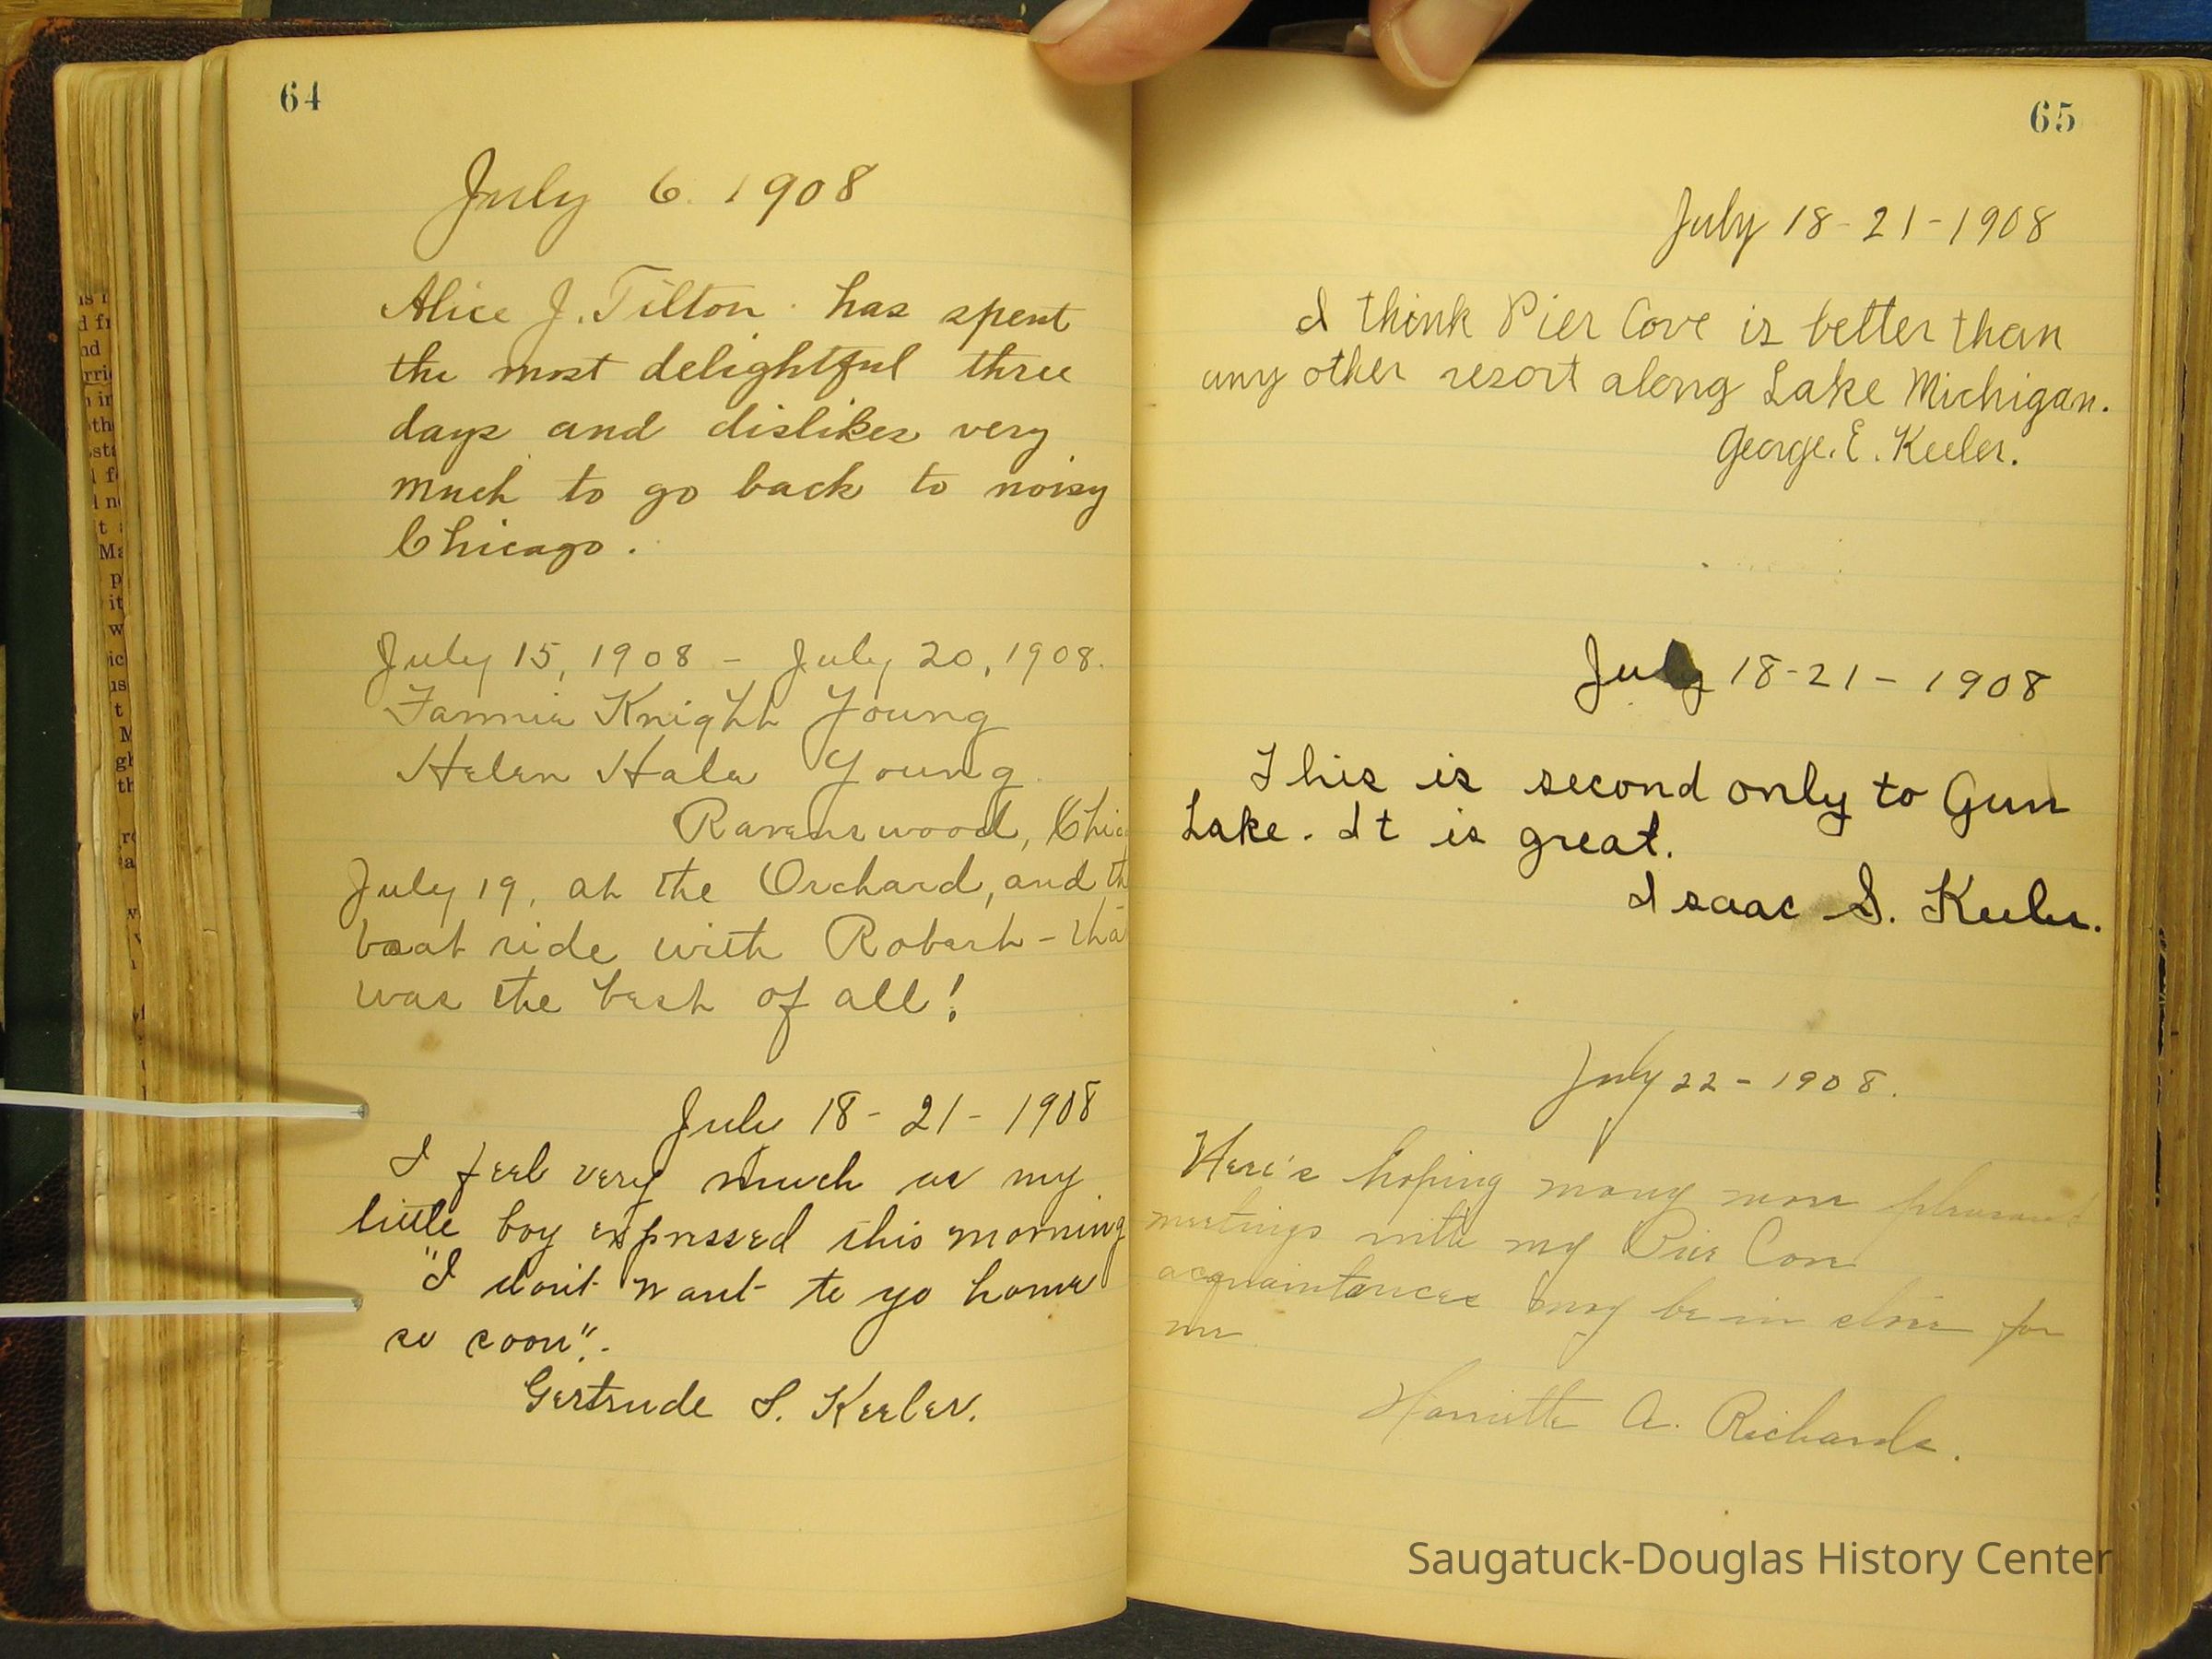 64
July 6. 1908
Alice J. Tilton has spent
the most delightful three
days and dislikes very
much to go back to noisy
Chicago.
July 15, 1908 - July 20, 1908.
Fannie Knight Young
Helen Hale Young
Ravenswood, Chic
July 19, at the Orchard, and th
boat ride with Robert - tha
was the best of all!
July 18 - 21 - 1908
I feel very much as my
little boy expressed this morning
"I don't want to go home
so soon".
Gertrude S. Keeler.
65
July 18 - 21 - 1908
I think Pier Cove is better than
any other resort along Lake Michigan.
George. E. Keeler.
July 18-21 - 1908
This is second only to Gun
Lake. It is great.
Isaac S. Keeler.
July 22 - 1908.
Here's hoping many more pleasant
meetings with my Pier Cove
acquaintances may be in store for
me.
Harriette A. Richards.
Saugatuck-Douglas History Center